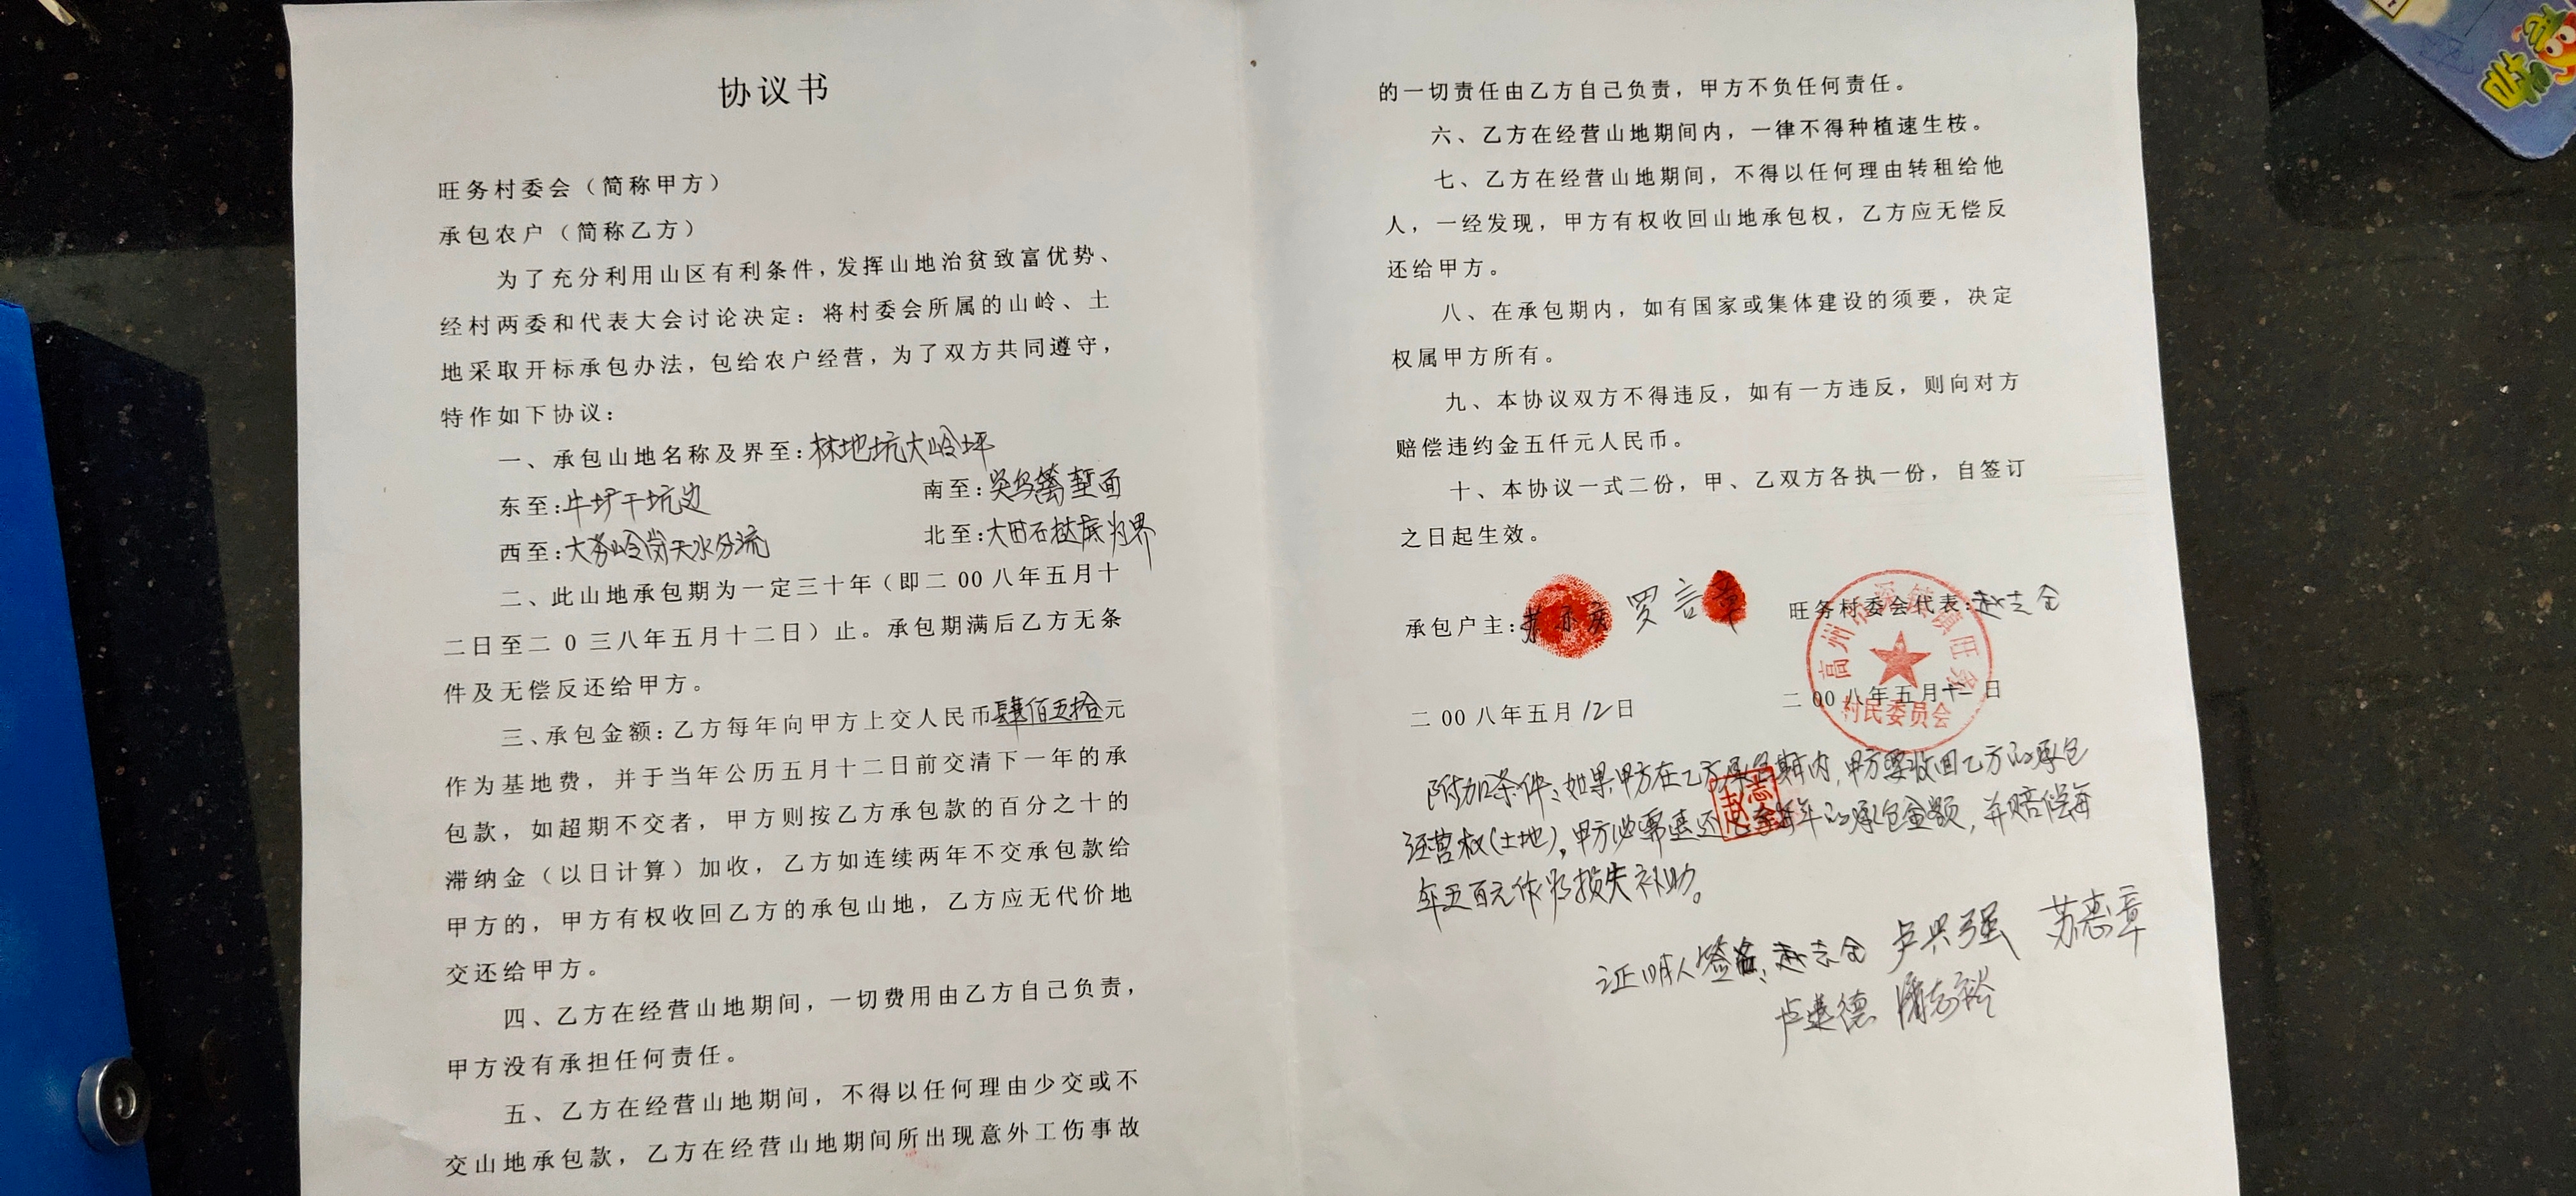 协议书
旺务村委会（简称甲方）
承包农户（简称乙方）
为了充分利用山区有利条件，发挥山地治贫致富优势、
经村两委和代表大会讨论决定：将村委会所属的山岭、土
地采取开标承包办法，包给农户经营，为了双方共同遵守，
特作如下协议：
一、承包山地名称及界至：林地坑大岭坪
东至：牛圹干坑边
南至：面
西至：大岭岗天水分流
北至：大田石底为界
二、此山地承包期为一定三十年（即二00八年五月十
二日至二0三八年五月十二日）止。承包期满后乙方无条
件及无偿反还给甲方。
三、承包金额：乙方每年向甲方上交人民币肆佰五拾元
作为基地费，并于当年公历五月十二日前交清下一年的承
包款，如超期不交者，甲方则按乙方承包款的百分之十的
滞纳金（以日计算）加收，乙方如连续两年不交承包款给
甲方的，甲方有权收回乙方的承包山地，乙方应无代价地
交还给甲方。
四、乙方在经营山地期间，一切费用由乙方自己负责，
甲方没有承担任何责任。
五、乙方在经营山地期间，不得以任何理由少交或不
交山地承包款，乙方在经营山地期间所出现意外工伤事故
的一切责任由乙方自己负责，甲方不负任何责任。
六、乙方在经营山地期间内，一律不得种植速生桉。
七、乙方在经营山地期间，不得以任何理由转租给他
人，一经发现，甲方有权收回山地承包权，乙方应无偿反
还给甲方。
八、在承包期内，如有国家或集体建设的须要，决定
权属甲方所有。
九、本协议双方不得违反，如有一方违反，则向对方
赔偿违约金五仟元人民币。
十、本协议一式二份，甲、乙双方各执一份，自签订
之日起生效。
承包户主：罗言章
旺务村委会代表：赵志全
高州市深镇镇旺务
村民委员会
二00八年五月12日
二00八年五月十二日
附加条件：如果甲方在乙方承包期内，甲方要收回乙方的承包
经营权（土地），甲方必需退还年的承包金额，并赔偿每
年五百元作为损失补助。
赵志全
证明人签名：赵志全 卢兴强 苏惠章
卢进德